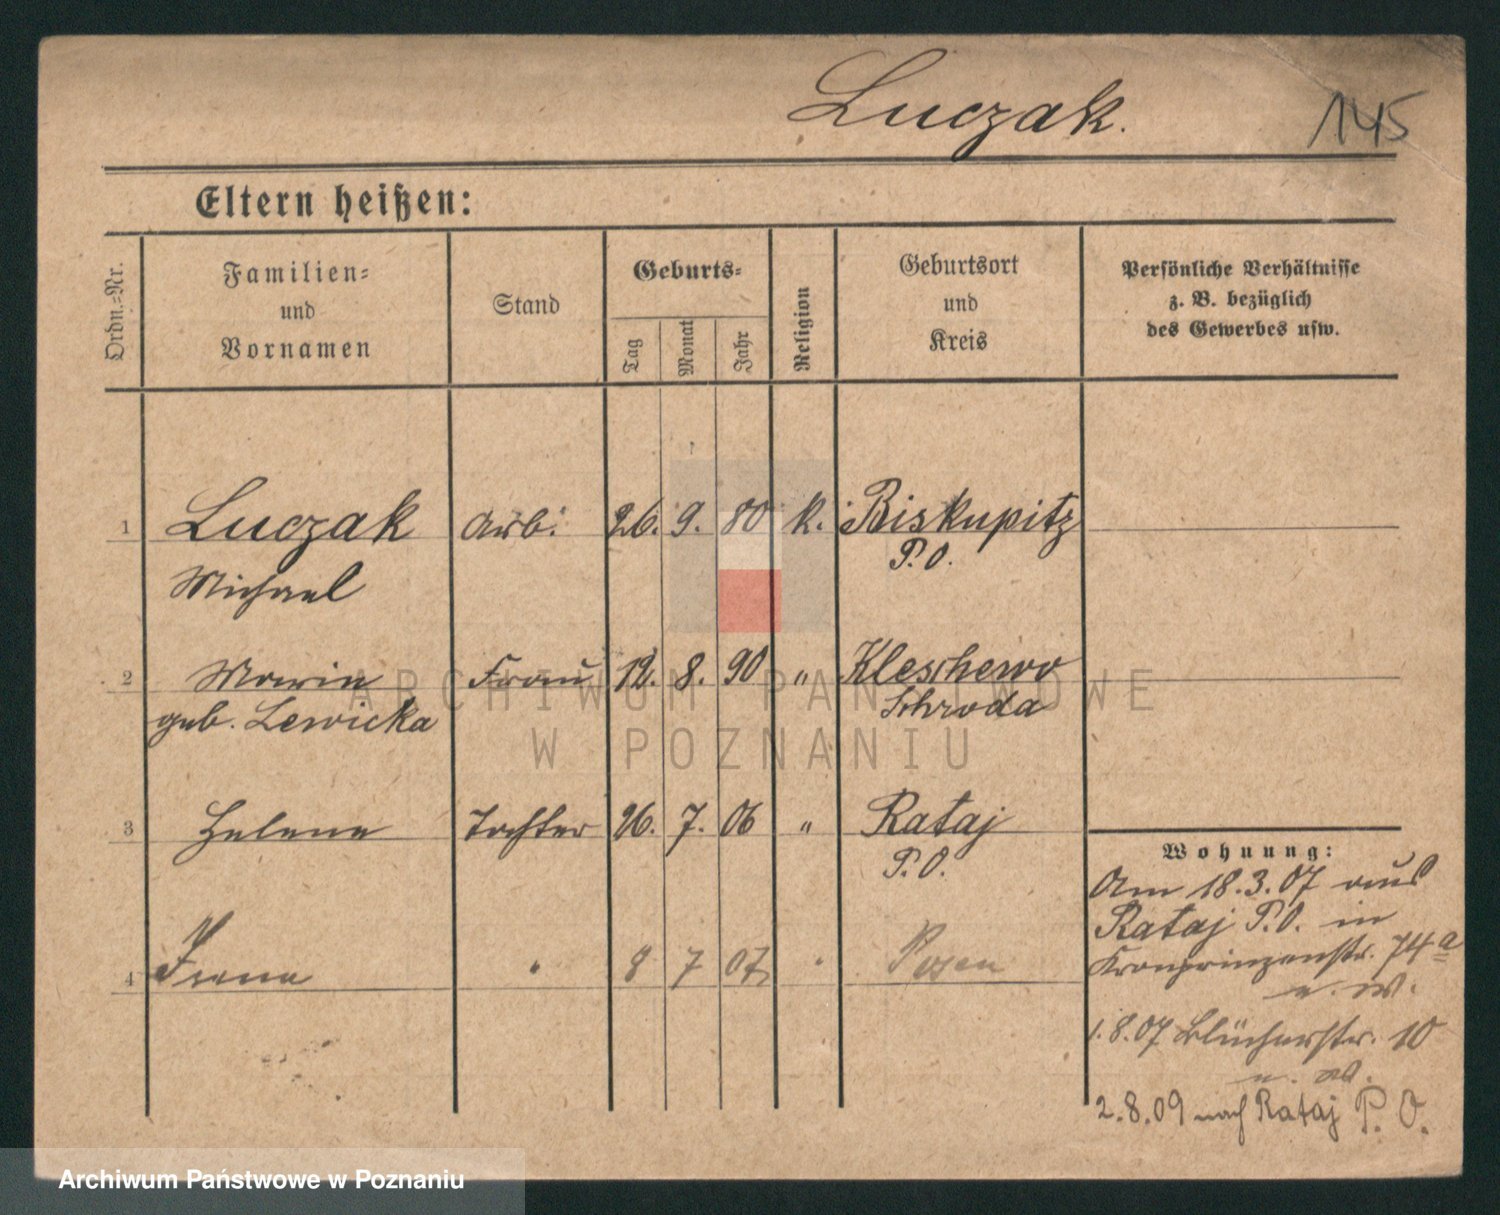 Luczak.
145
Eltern heißen:
Ordn.-Nr.
Familien-
und
Vornamen
Stand
Geburts-
Tag
Monat
Jahr
Religion
Geburtsort
und
Kreis
Persönliche Verhältnisse
z. B. bezüglich
des Gewerbes usw.
1 Luczak Arb. 26. 9. 80 k. Biskupitz
P.O.
Michael
2 Maria Frau 12. 8. 90 " Kleschewo
geb. Lewicka Schroda
3 Helene Tochter 26. 7. 06 " Rataj
P.O.
Wohnung:
Am 18.3.07 aus
Rataj P.O. in
4 Irena " 8 7 07 " Posen
Kronprinzenstr. 74a
1.8.07 Blücherstr. 10
2.8.09 nach Rataj P. O.
ARCHIWUM PAŃSTWOWE
W POZNANIU
Archiwum Państwowe w Poznaniu